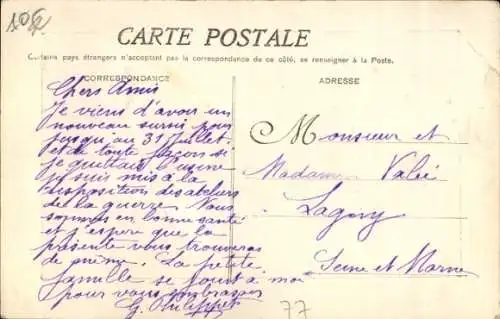 CARTE POSTALE
Certains pays étrangers n'acceptant pas la correspondance de ce côté, se renseigner à la Poste.
CORRESPONDANCE
ADRESSE
Chers Amis
Je viens d'avoir un
nouveau sursis pour
jusqu au 31 Juillet.
et de toute façon si
je quittais l'usine
je suis mis à la
disposition des ateliers
de la guerre. Nous
sommes en bonne santé
et j'espère que la
présente vous trouveras
de même. La petite
famille se joint a moi
pour vous embrasser
G. Philippe
Monsieur et
Madame Valée
Lagny
Seine et Marne
77